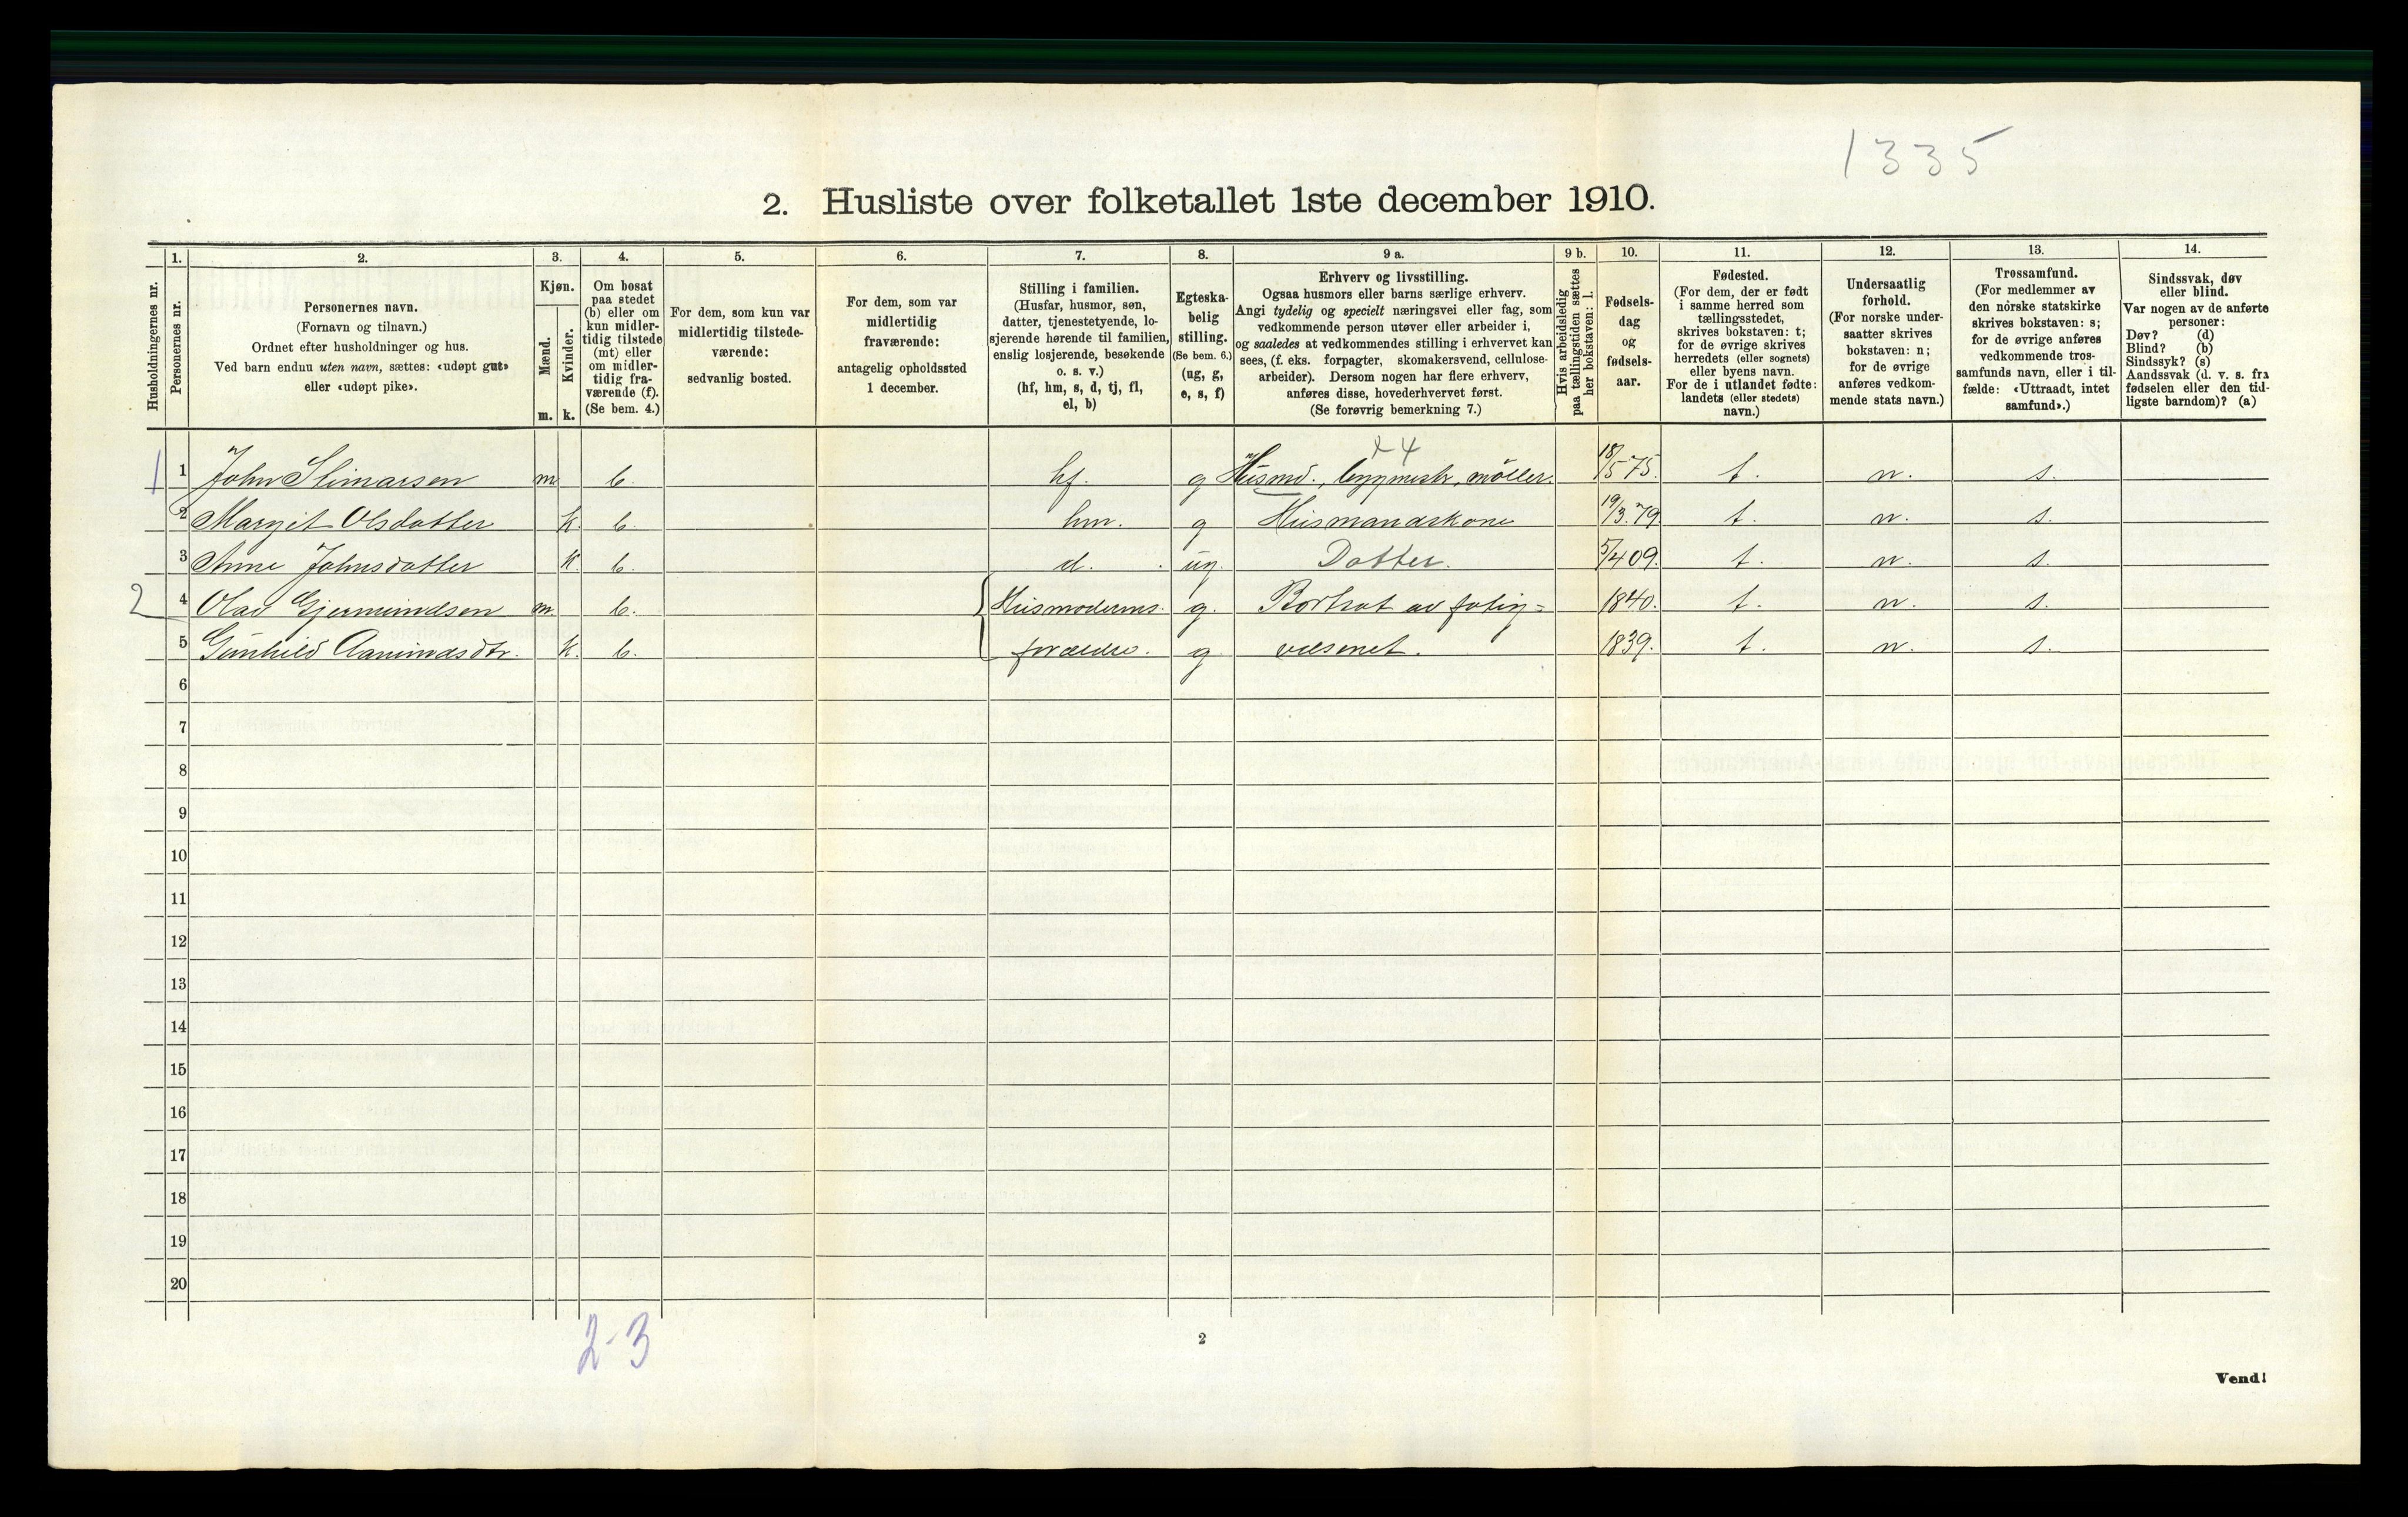 1335
2. Husliste over folketallet 1ste december 1910.
Husholdningernes nr.
1.
Personernes nr.
2.
Personernes navn.
(Fornavn og tilnavn.)
Ordnet efter husholdninger og hus.
Ved barn endnu uten navn, sættes: «udøpt gut»
eller «udøpt pike».
3.
Kjøn.
Mænd.
m.
Kvinder.
k.
4.
Om bosat
paa stedet
(b) eller om
kun midler-
tidig tilstede
(mt) eller
om midler-
tidig fra-
værende (f).
(Se bem. 4.)
5.
For dem, som kun var
midlertidig tilstede-
værende:
sedvanlig bosted.
6.
For dem, som var
midlertidig
fraværende:
antagelig opholdssted
1 december.
7.
Stilling i familien.
(Husfar, husmor, søn,
datter, tjenestetyende, lo-
sjerende hørende til familien,
enslig losjerende, besøkende
o. s. v.)
(hf, hm, s, d, tj, fl,
el, b)
8.
Egteska-
belig
stilling.
(Se bem. 6.)
(ug, g,
e, s, f)
9 a.
Erhverv og livsstilling.
Ogsaa husmors eller barns særlige erhverv.
Angi tydelig og specielt næringsvei eller fag, som
vedkommende person utøver eller arbeider i,
og saaledes at vedkommendes stilling i erhvervet kan
sees, (f. eks. forpagter, skomakersvend, cellulose-
arbeider). Dersom nogen har flere erhverv,
anføres disse, hovederhvervet først.
(Se forøvrig bemerkning 7.)
9 b.
Hvis arbeidsledig
paa tællingstiden sættes
her bokstaven: l.
10.
Fødsels-
dag
og
fødsels-
aar.
11.
Fødested.
(For dem, der er født
i samme herred som
tællingsstedet,
skrives bokstaven: t;
for de øvrige skrives
herredets (eller sognets)
eller byens navn.
For de i utlandet fødte:
landets (eller stedets)
navn.)
12.
Undersaatlig
forhold.
(For norske under-
saatter skrives
bokstaven: n;
for de øvrige
anføres vedkom-
mende stats navn.)
13.
Trossamfund.
(For medlemmer av
den norske statskirke
skrives bokstaven: s;
for de øvrige anføres
vedkommende tros-
samfunds navn, eller i til-
fælde: «Uttraadt, intet
samfund».)
14.
Sindssvak, døv
eller blind.
Var nogen av de anførte
personer:
Døv? (d)
Blind? (b)
Sindssyk? (s)
Aandssvak (d. v. s. fra
fødselen eller den tid-
ligste barndom)? (a)
1 1 John m b. hf. g Husmd., møller. 18/5 75. t. n. s.
2 Margit Olsdatter k. b. hm. g Husmandskone 19/3.79. t. n. s.
3 Anne Johnsdatter k. b. d. ug. Datter. 5/4 09. t. n. s.
2 4 Olav Gjermundsen m. b. Husmoderens g. av fatig= 1840. t. n. s.
5 Gunhild Aanundsdtr. k. b. forældre. g. væsenet. 1839. t. n. s.
6
7
8
9
10
11
12
13
14
15
16
17
18
19
20
2-3
2
Vend!